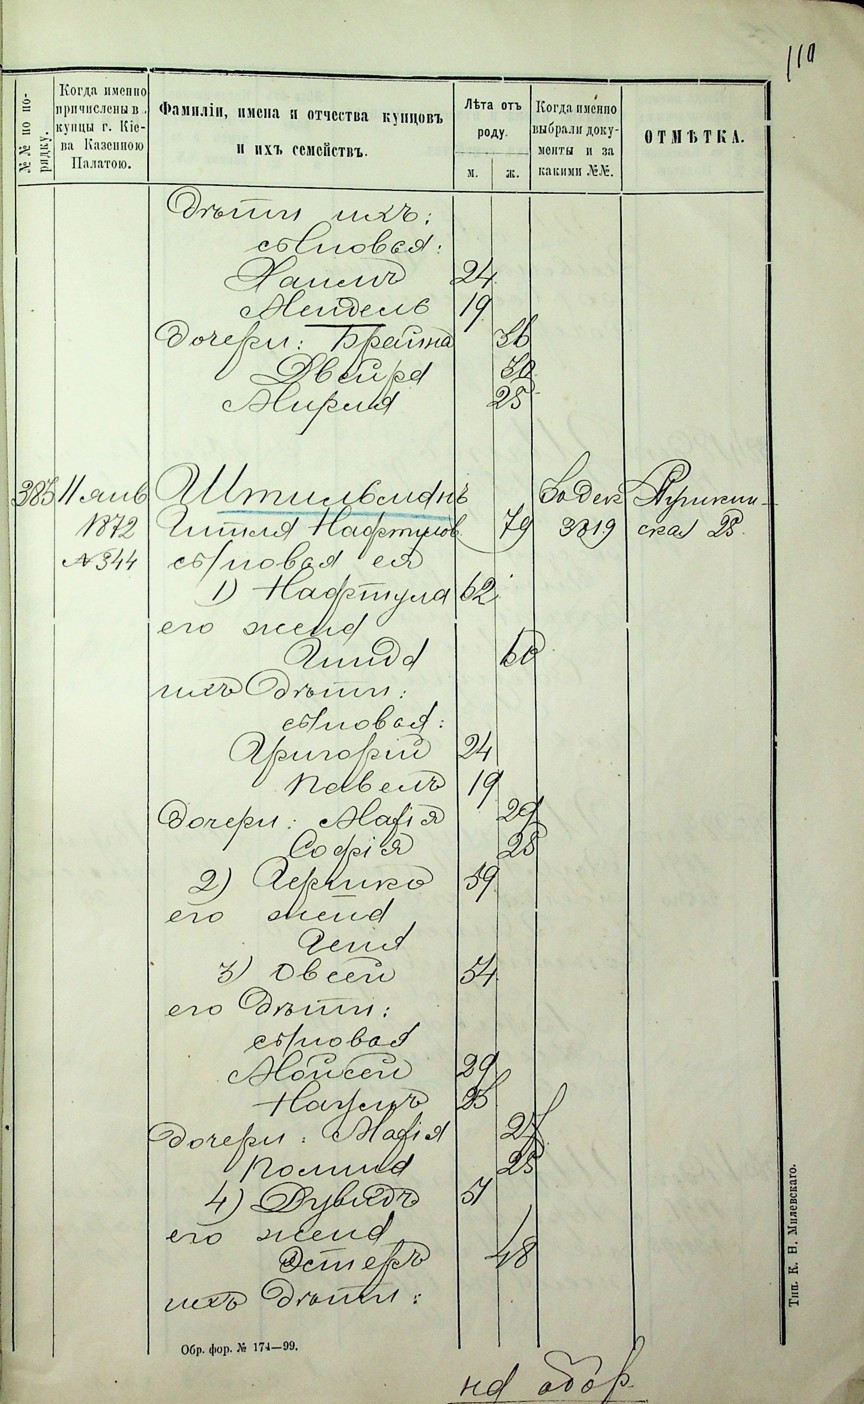 110
№№ по по-
рядку.
Когда именно
причислены в
купцы г. Кіе-
ва Казенною
Палатою.
Фамиліи, имена и отчества купцовъ
и ихъ семействъ.
Лѣта отъ
роду.
м. ж.
Когда именно
выбрали доку-
менты и за
какими №№.
ОТМѢТКА.
Дѣти ихъ:
сыновья:
Хаимъ 24
Мендель 19
Дочери: Брайна 36
Двейра 30
Мирля 25
383 11 янв Штильманъ
1872 Гитля Нафтулов. 79 3819 ская 25
№ 344 сыновья ея
1) Нафтула 62
его жена
60
ихъ Дѣти:
сыновья:
Григорій 24
Павелъ 19
Дочери: Марія 29
Софія 25
2) Гершко 59
его жена
Геня
3) Овсей 54
его Дѣти:
сыновья
Моисей 29
Наумъ
Дочери: Марія 27
25
4) Дувидъ 51
его жена
Эстеръ 48
ихъ Дѣти:
Обр. фор. № 174—99.
на обор.
Тип. К. Н. Милевскаго.